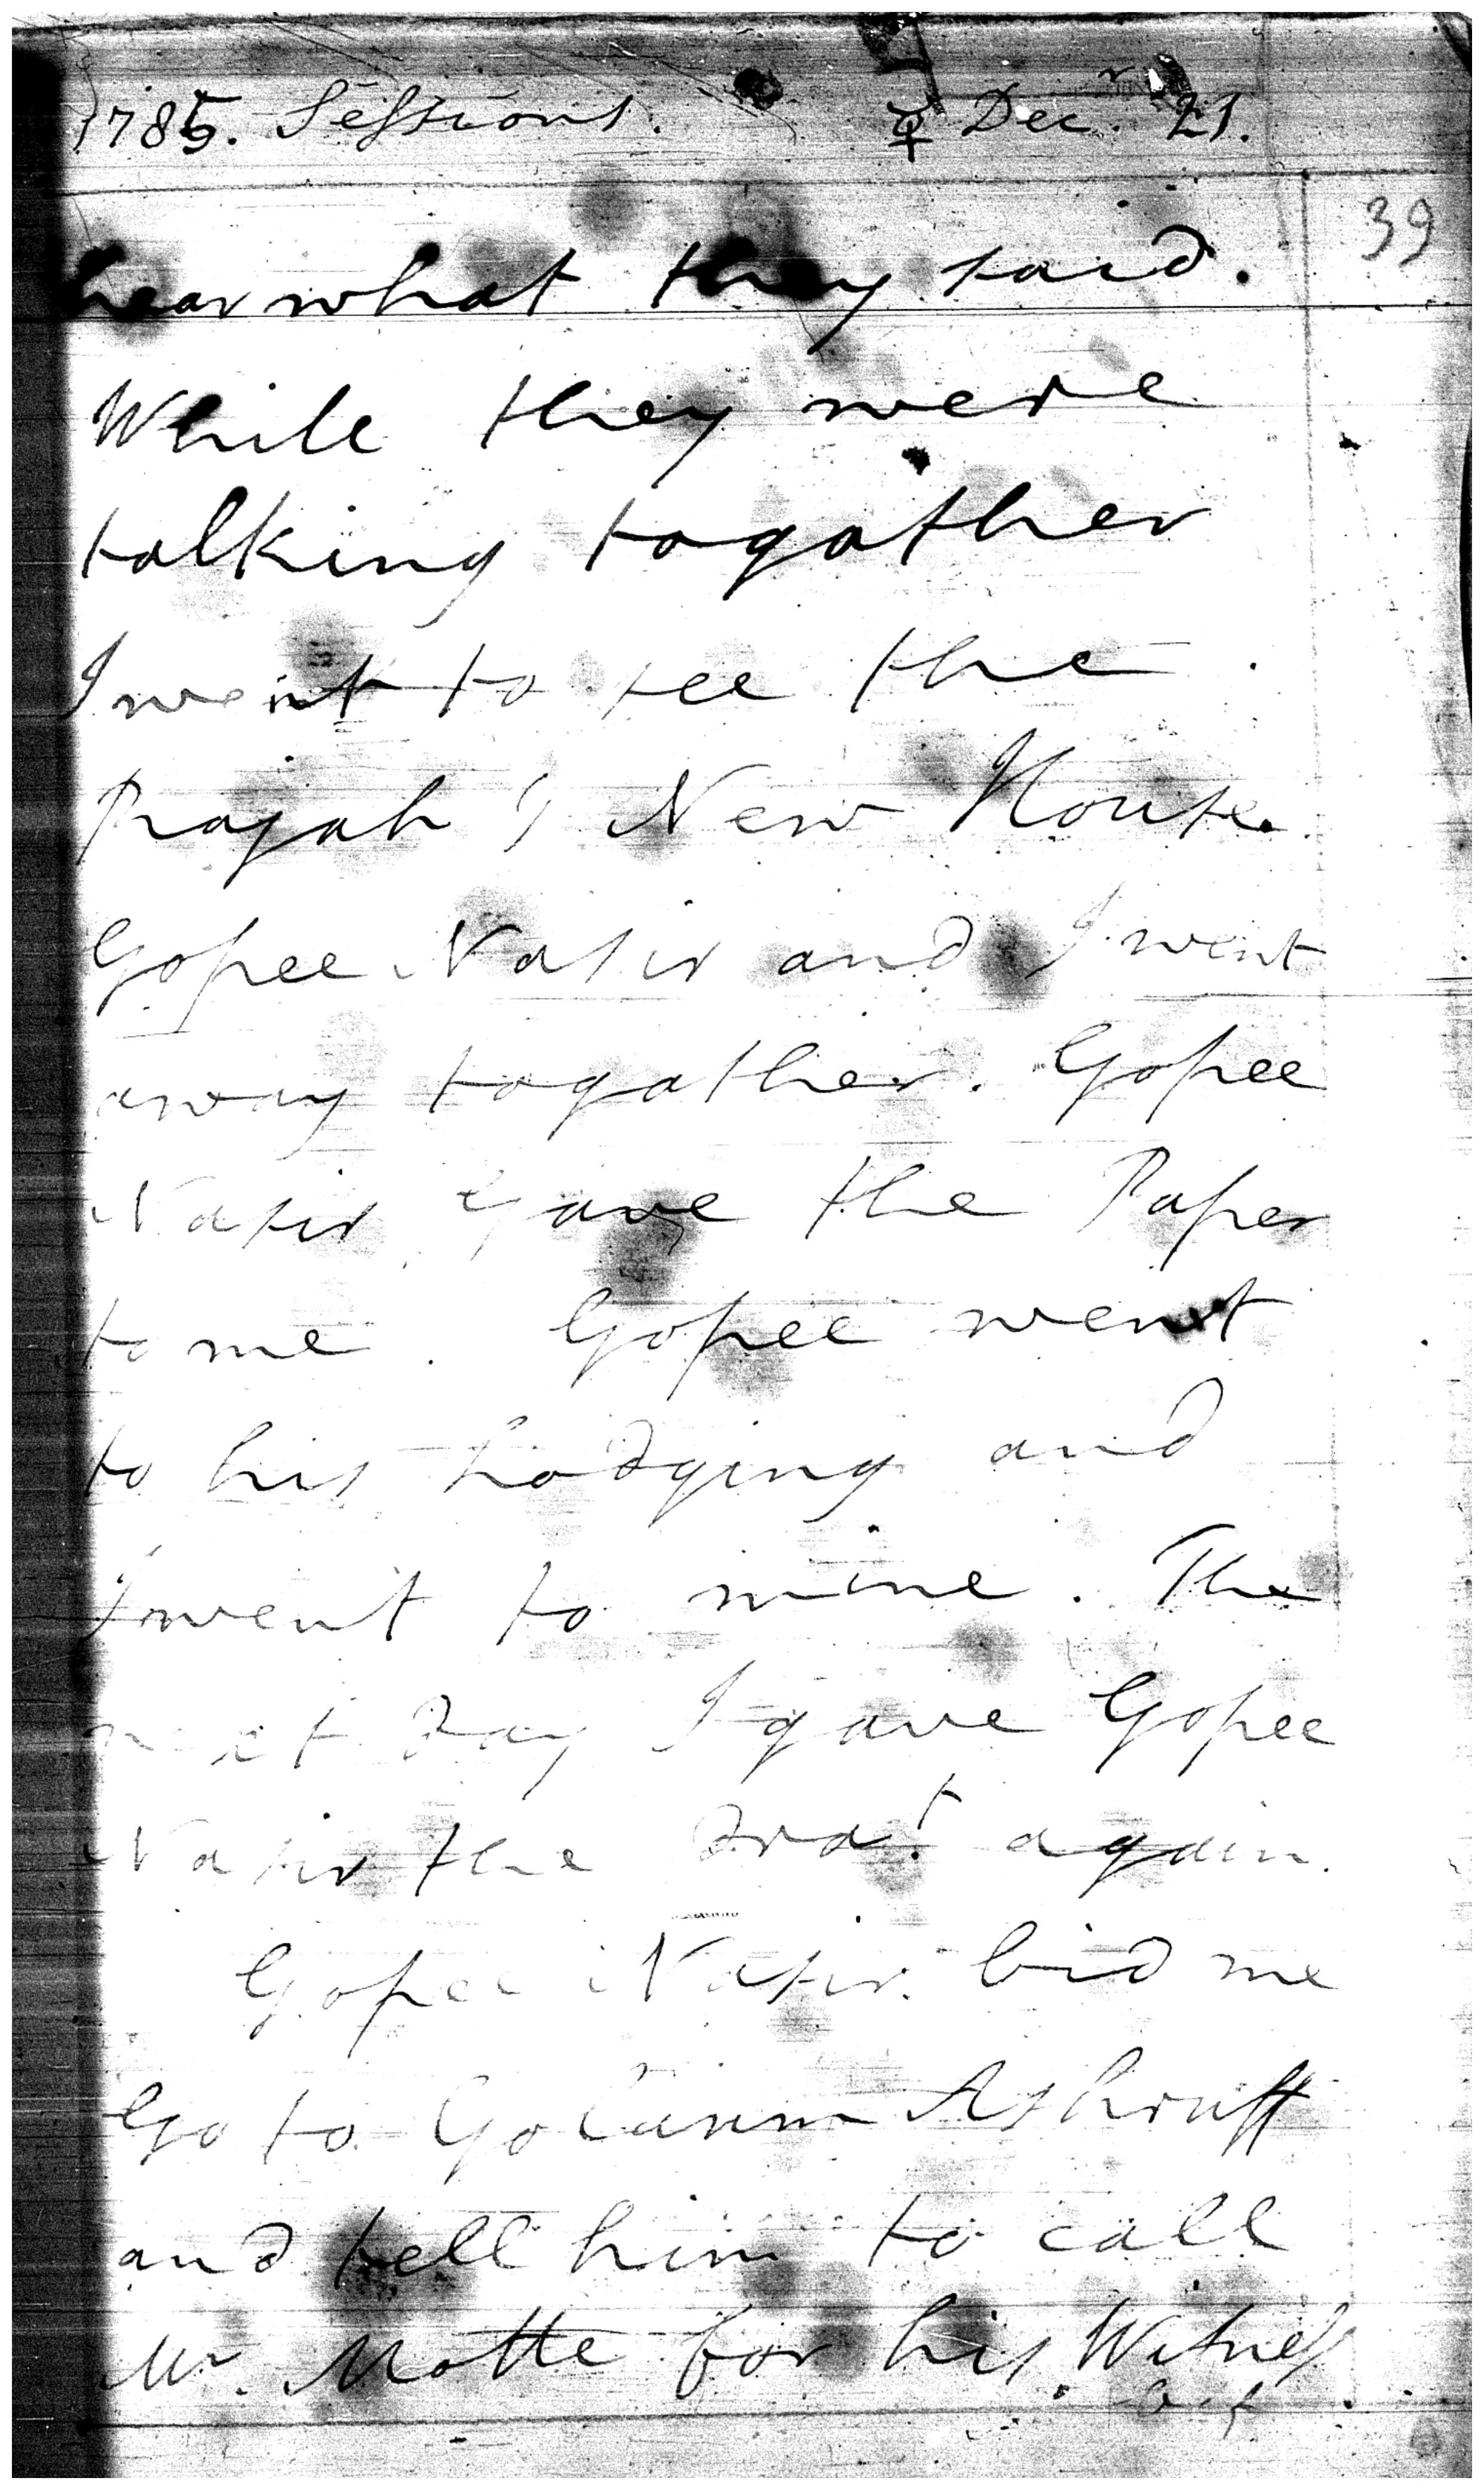 1785. Sessions. ♀ Decr. 21.
39
hear what they said.
While they were
talking togather
I went to see the
Rajah's New House.
Gopee Nasir and I went
away togather. Gopee
Nasir gave the Paper
to me. Gopee went
to his Lodging and
I went to mine. The
next day I gave Gopee
Nasir the dra:t again.
Gopee Nasir bid me
Go to Golaum Ashruff
and tell him to call
Mr. Motte for his Witness